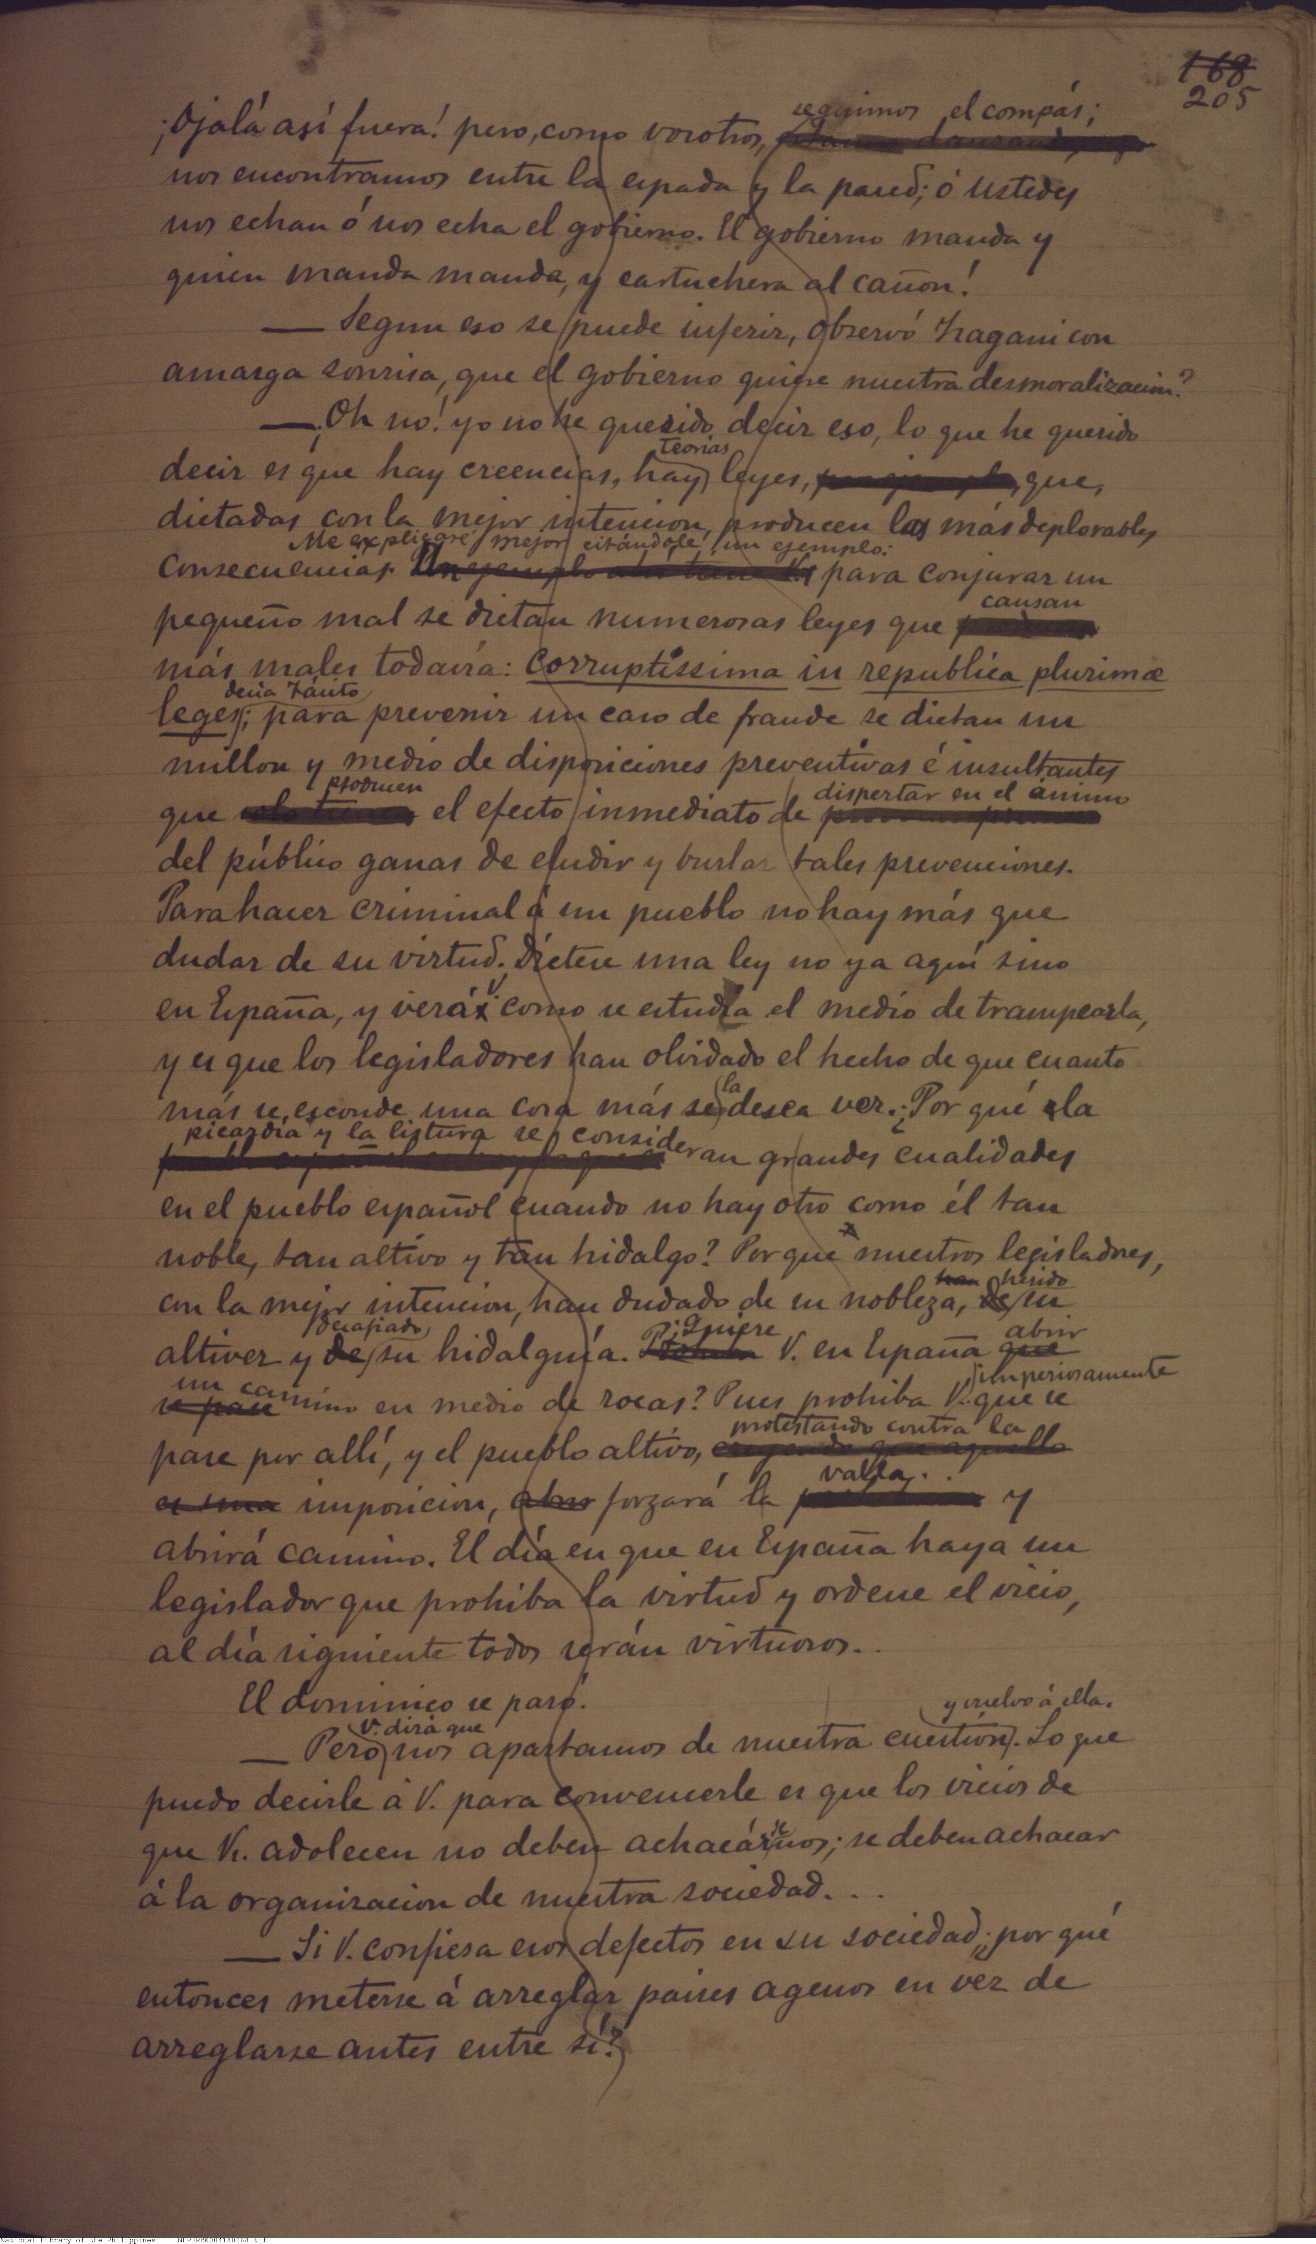 168
205
seguimos el compás;
¡Ojalá así fuera! pero, como vosotros,
nos encontramos entre la espada y la pared; ó ustedes
nos echan ó nos echa el gobierno. El gobierno manda y
quien manda manda, y cartuchera al cañon!
— Segun eso se puede inferir, observó Isagani con
amarga sonrisa, que el gobierno quiere nuestra desmoralizacion?
— ¡Oh no! yo no he querido decir eso, lo que he querido
teorias
decir es que hay creencias, hay leyes, que,
dictadas con la mejor intencion, producen las más deplorables
Me explicaré mejor citándole un ejemplo:
consecuencias. para conjurar un
causan
pequeño mal se dictan numerosas leyes que
más males todavía: corruptissima in republica plurimæ
decia Tácito
leges; para prevenir un caso de fraude se dictan un
millon y medio de disposiciones preventivas é insultantes
producen dispertar en el ánimo
que el efecto inmediato de
del público ganas de eludir y burlar tales prevenciones.
Para hacer criminal á un pueblo no hay más que
dudar de su virtud. Díctese una ley no ya aquí sino
en España, y verá V. como se estudia el medio de trampearla,
y es que los legisladores han olvidado el hecho de que cuanto
la
más se esconde una cosa más se desea ver. ¿Por qué la
picardía y la listura se consideran grandes cualidades
en el pueblo español cuando no hay otro como él tan
noble, tan altivo y tan hidalgo? Porque nuestros legisladores,
han herido
con la mejor intencion, han dudado de su nobleza, de su
desafiado ¿Quiere abrir
altivez y de su hidalguía. V. en España que
un camino imperiosamente
se pase en medio de rocas? Pues prohiba V. que se
protestando contra la
pase por allí, y el pueblo altivo, creyendo que aquello
valla
es una imposicion, abre forzará la y
abrirá camino. El día en que en España haya un
legislador que prohiba la virtud y ordene el vicio,
al día siguiente todos serán virtuosos..
El dominico se paró.
V. dirá que y vuelvo á ella.
— Pero nos apartamos de nuestra cuestión. Lo que
puedo decirle á V. para convencerle es que los vicios de
que Vs. adolecen no deben achacársenos; se deben achacar
á la organizacion de nuestra sociedad...
— Si V. confiesa esos defectos en su sociedad, ¿por qué
entonces meterse á arreglar paises agenos en vez de
arreglarse antes entre sí?